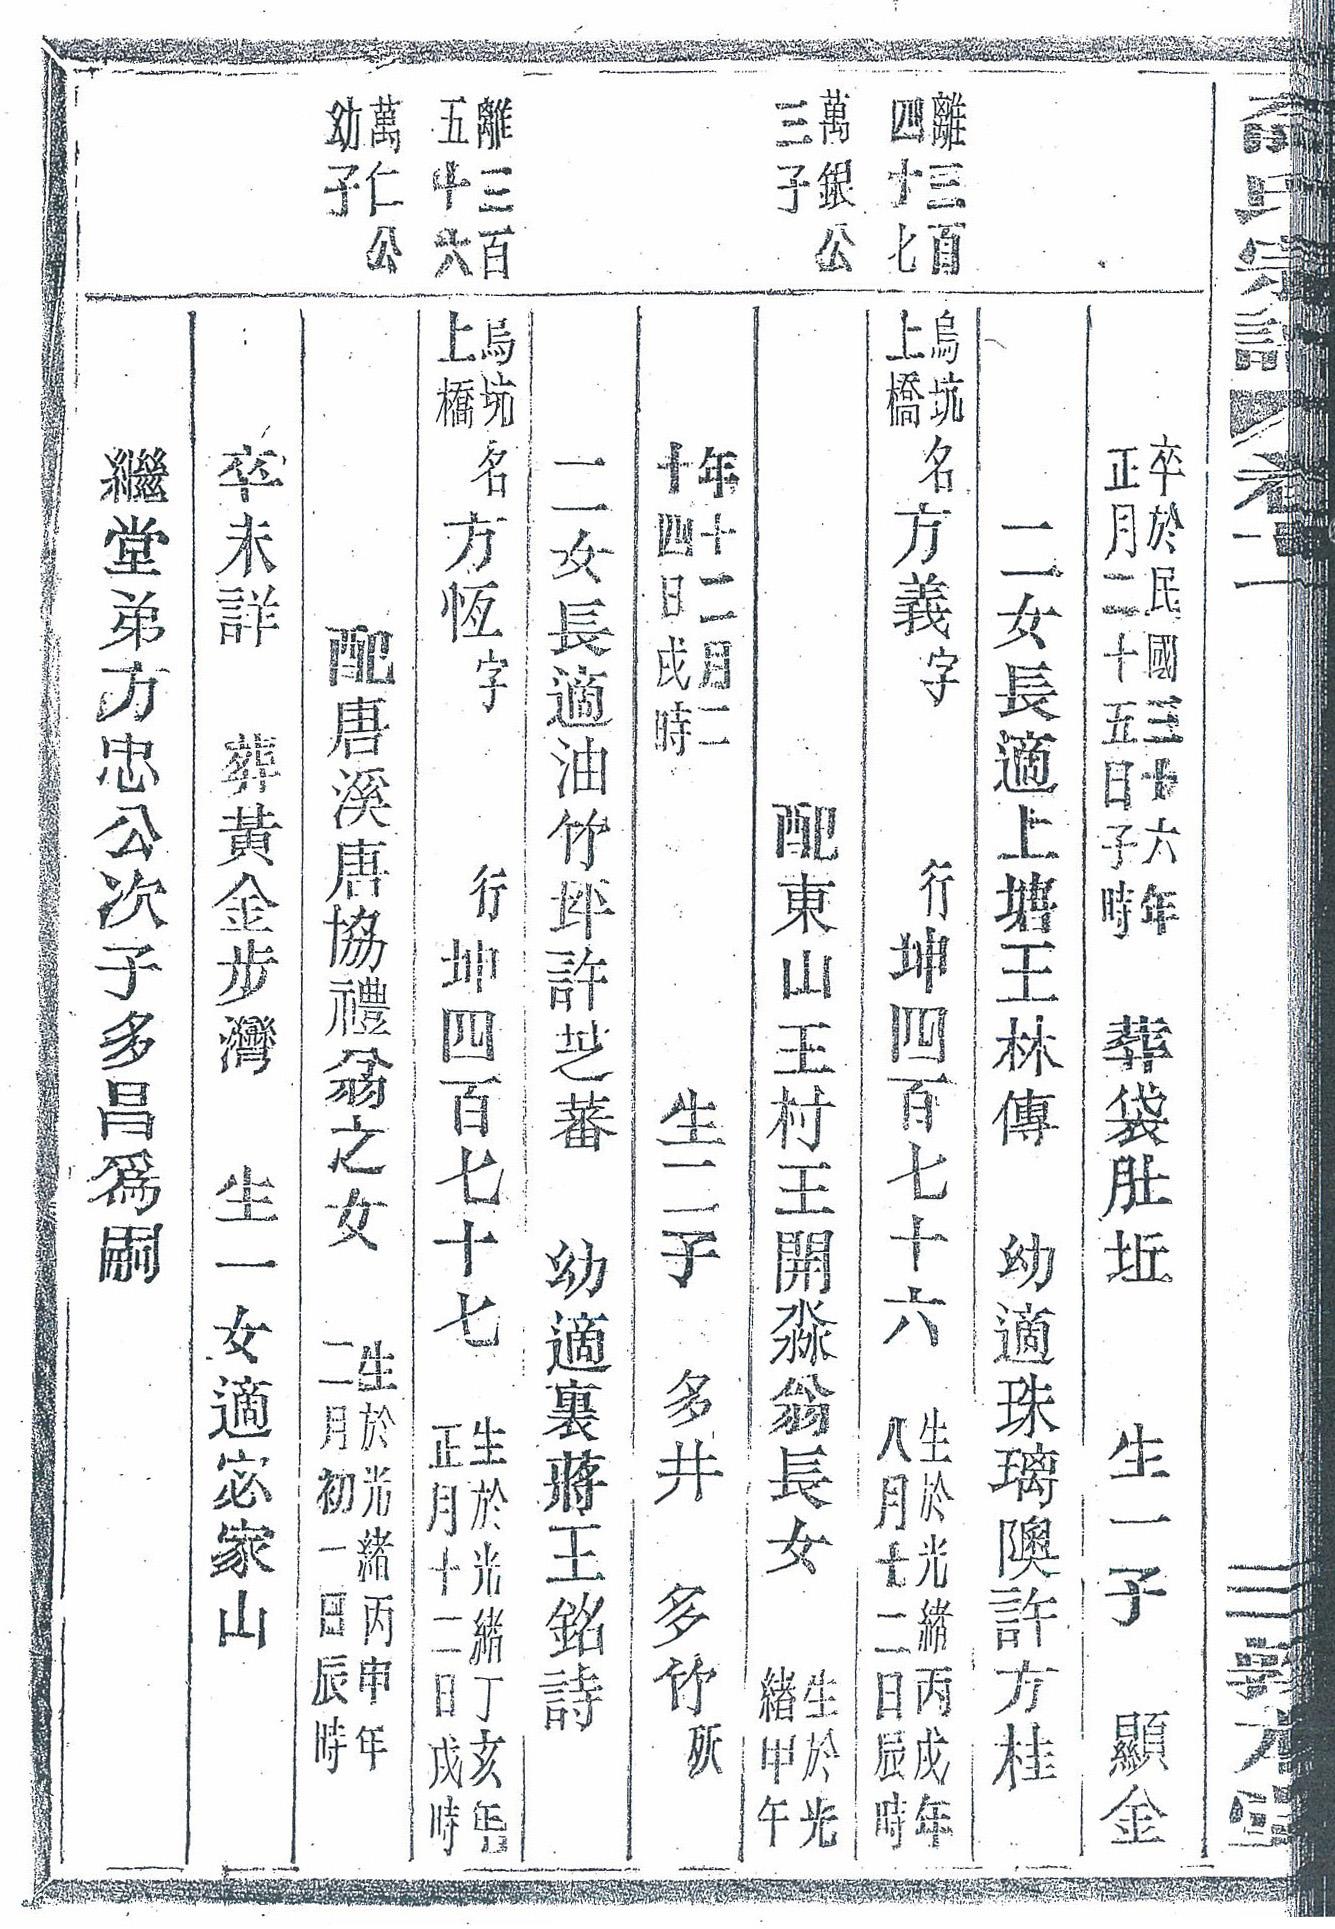 氏宗譜 卷十一
卒於民國三十六年
正月二十五日子時
葬袋肚坵 生一子 顯金
二女長適上塘王林傳 幼適珠璃隩許方桂
離三百
四十七
烏坑
上橋
名方義字 行坤四百七十六
生於光緒丙戌年
八月十二日辰時
萬銀公
三子
配東山王村王開淼翁長女
生於光
緒甲午
年十二月二
十四日戌時
生二子 多井 多竹
二女長適油竹坪許芝蕃 幼適裏蔣王銘詩
離三百
五十六
烏坑
上橋
名方恆字 行坤四百七十七
生於光緒丁亥年
正月十二日戌時
萬仁公
幼子
配唐溪唐協禮翁之女
生於光緒丙申年
二月初一日辰時
卒未詳 葬黃金步灣 生一女適宓家山
繼堂弟方忠公次子多昌為嗣